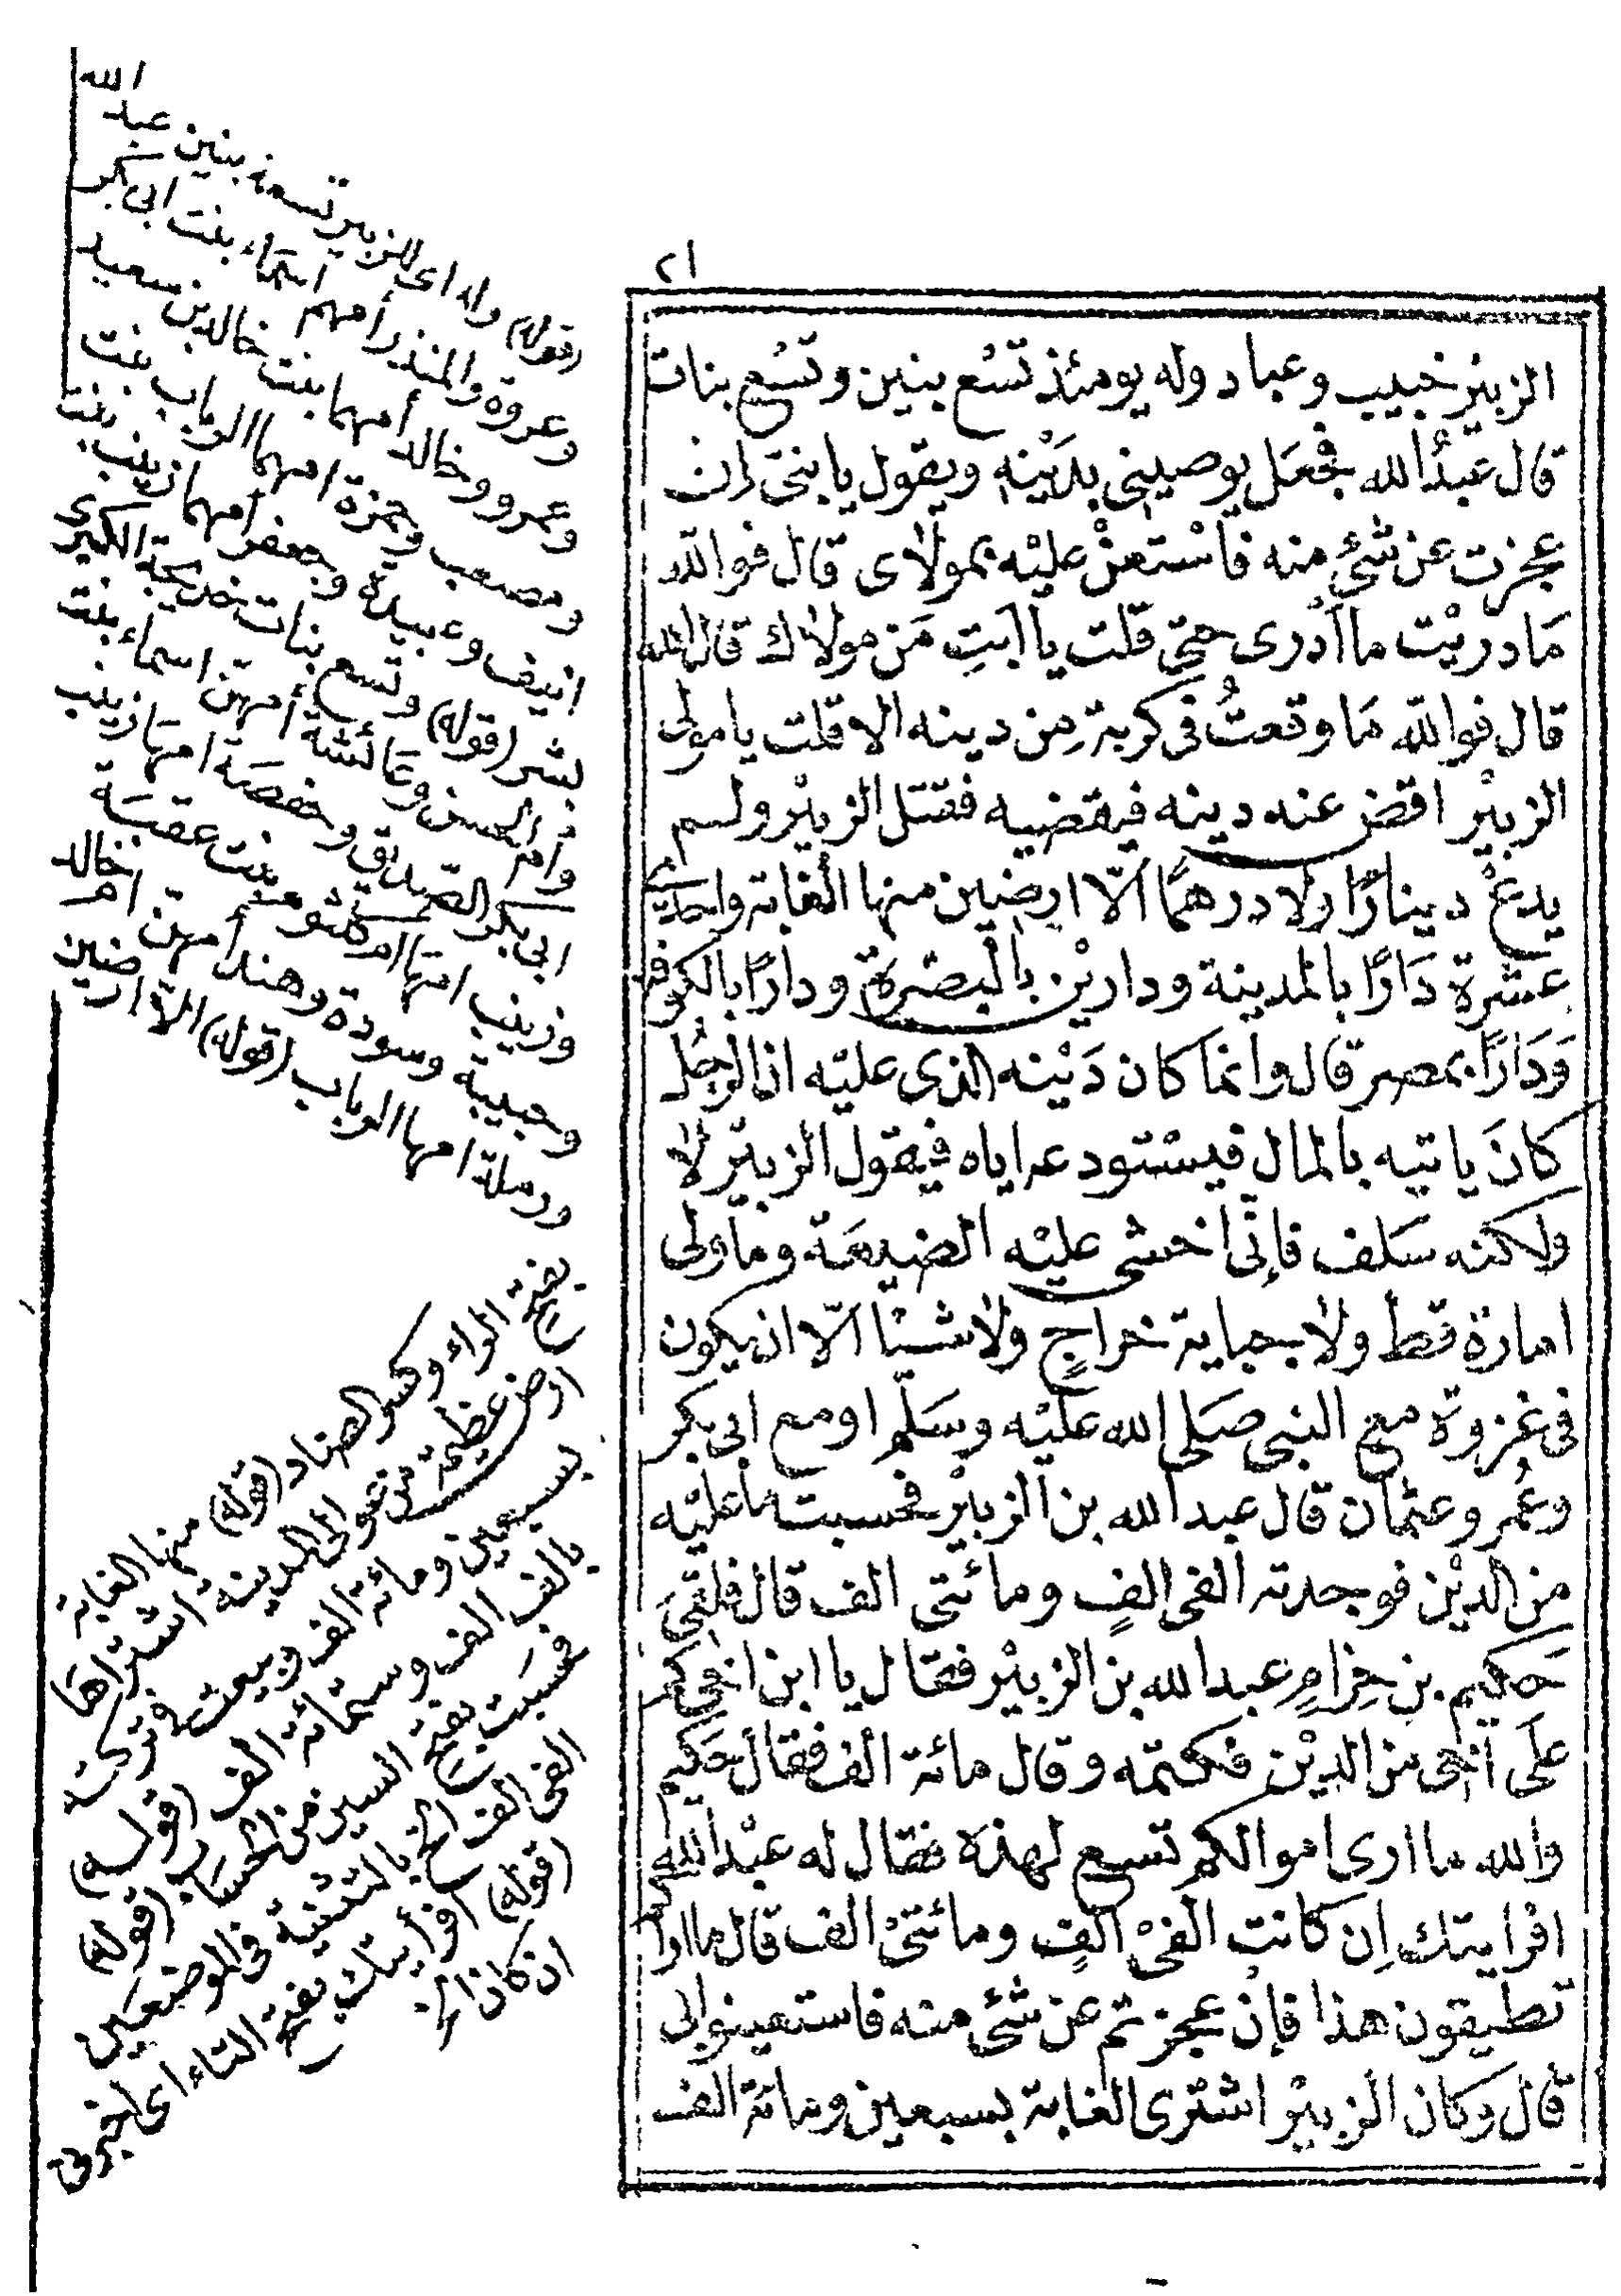 ٢١
الزبيْر خبيب وعباد وله يومئذ تسْع بنين وتسْع بنات
قال عبدُ الله فجعَل يوصيني بدَيْنه ويقول يا بنىَّ إن
عجزت عن شئٍ منه فاسْتعنْ عليْه بمولاى قال فوالله
مَا دريْت ما أدْرى حتى قلت يا ابتِ مَن مولاك قال الله
قال فوالله مَا وقعتُ فى كربة مِن دينه الا قلت يا مولى
الزبيْر اقض عنه دينه فيقضيه فقتل الزبيْر ولم
يدعْ دينارًا ولا درهمًا الّا ارضين منها الْغابة واحدى
عشرة دَارًا بالمدينة ودارين بالْبصْرة ودارًا بالكوفة
وَدَارًا بمصر قال وانما كان دَيْنه الذى عليْه ان الرجُل
كانَ ياتيه بالمال فيسْتودعه اياه فيقول الزبيْر لا
ولكنه سَلف فإنّى اخشى عليْه الضيعَة وما ولى
امارة قط ولا جباية خراجٍ ولا شيْا الّا ان يكون
فى غزوة مع النبى صَلى الله عليْه وسَلّم او مع ابى بكر
وعُمر وعثمان قال عبد الله بن الزبيْر فحسبت ما عليْه
من الديْن فوجدته الفى الفٍ ومائتى الف قال فلقىَ
حَكيم بن حِزامٍ عبد الله بن الزبيْر فقال يا ابن اخى كم
علَى اخى من الديْن فكتمه وقال مائة الف فقال حَكيم
والله ما ارى اموالكم تسع لهذه فقال له عبْد الله
افرايتك اِن كانت الفىْ الفٍ ومائتىْ الف قال ما اراكم
تطيقون هذا فإنْ عجزتم عن شئ منه فاستعينوا بى
قال وكان الزبيْر اشترى الغابة بسبعين ومائة الف
(قوله) وله اى للزبير تسعة بنين عبد الله
وعروة والمنذر أمهم اسماء بنت ابى بكر
وعمرو وخالد أمهما بنت خالد بن سعيد
ومصعب وحمزة امهما الرباب بنت
انيف وعبيدة وجعفر امهما زينب بنت
بشر (قوله) وتسع بنات خديجة الكبرى
وأم الحسن وعَائشة أمهنّ اسماء بنت
ابى بكر الصّديق وحفصَة امهَا زينب
وزينب امّها ام كلثوم بنت عقبَة
وحبيبة وسودة وهند أمهنّ ام خالد
ورملة امها الرباب (قوله) الّا ارضين
بفتح الراء وكسر الضاد (قوله) منها الغابة
ارض عظيمة من عوالى المدينة اشتراها
بسبعين ومائة الف وبيعت فى تركته
بالف الف وستمائة الف (قوله)
فحسبت بفتح السين من الحساب (قوله)
الفى الف الخ بالتثنية فى الموضعين
(قوله) افرأيتك بفتح التاء اى اخبرنى
ان كان الخ